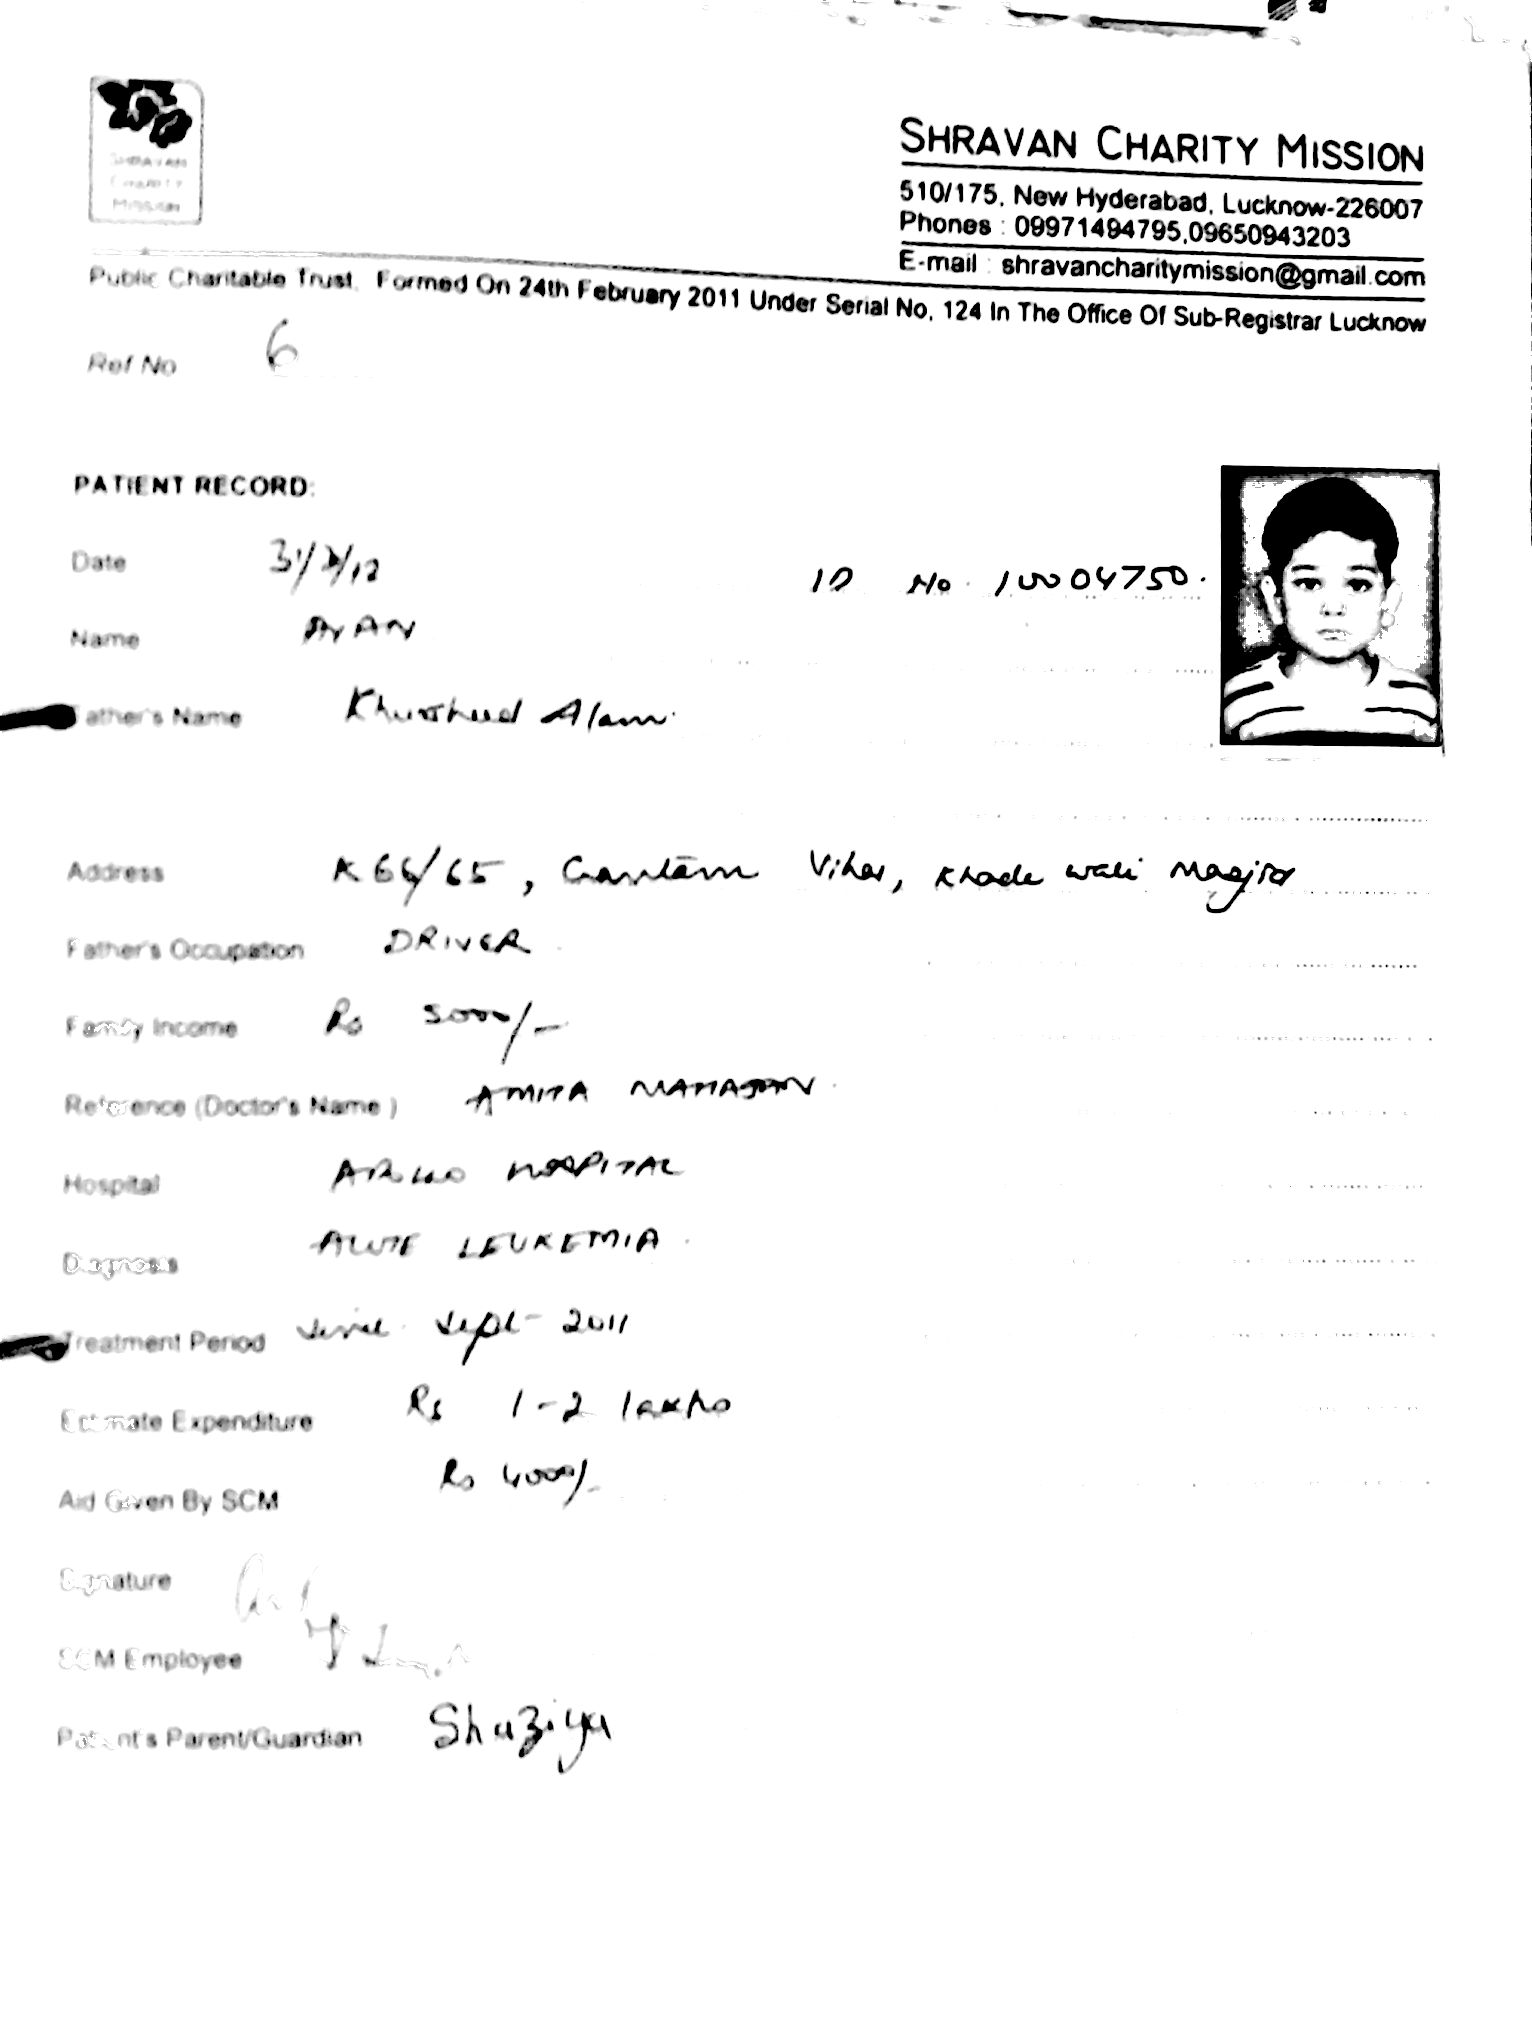 SHRAVAN
CHARITY
MISSION
SHRAVAN CHARITY MISSION
510/175, New Hyderabad, Lucknow-226007
Phones : 09971494795,09650943203
E-mail : shravancharitymission@gmail.com
Public Charitable Trust, Formed On 24th February 2011 Under Serial No, 124 In The Office Of Sub-Registrar Lucknow
Ref No 6
PATIENT RECORD:
Date
ID No. 10004750.
Name AYAN
Father's Name Khurshud Alam.
Address K 64/65, Gautam Vihar, Khade wali Masjid
Father's Occupation DRIVER
Family Income Rs 5000/-
Reference (Doctor's Name) AMITA MAHAJAN
Hospital APOLLO HOSPITAL
Diagnosis ACUTE LEUKEMIA
Treatment Period Since Sept- 2011
Estimate Expenditure Rs 1-2 lakhs
Aid Given By SCM Rs 4000/-
Signature
SCM Employee
Patient's Parent/Guardian Shaziya